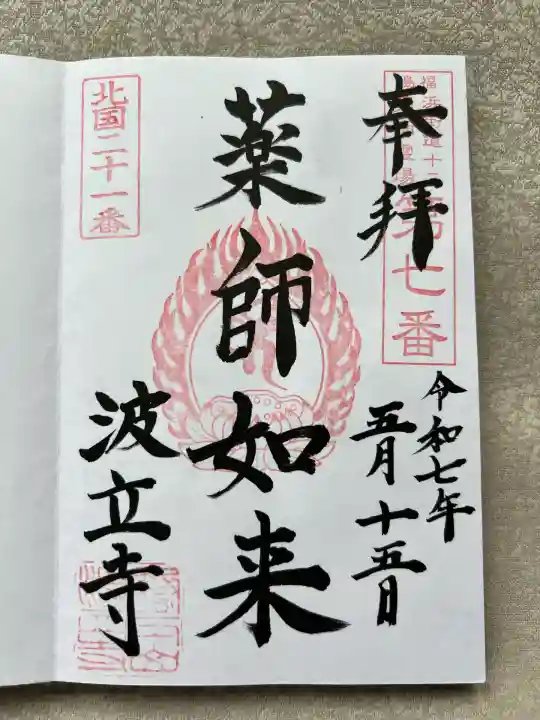 奉拝
第七番
令和七年
五月十五日
薬師如来
北国二十一番
波立寺